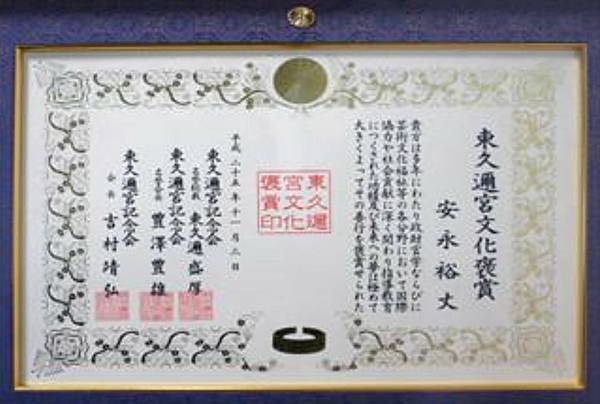 東久邇宮文化褒賞
安永裕丈
貴方は多年にわたり政財官学ならびに
芸術文化福祉等の各分野において国際
協力や社会貢献に深く関わり指導教育
につくされた功績及び未来への夢は極めて
大きくよってその善行を褒賞せられた
東久邇
宮文化
褒賞印
平成二十五年十一月二日
東久邇宮記念会
東久邇盛厚
東久邇宮記念会
豊澤豊雄
東久邇宮記念会
会長 吉村靖弘